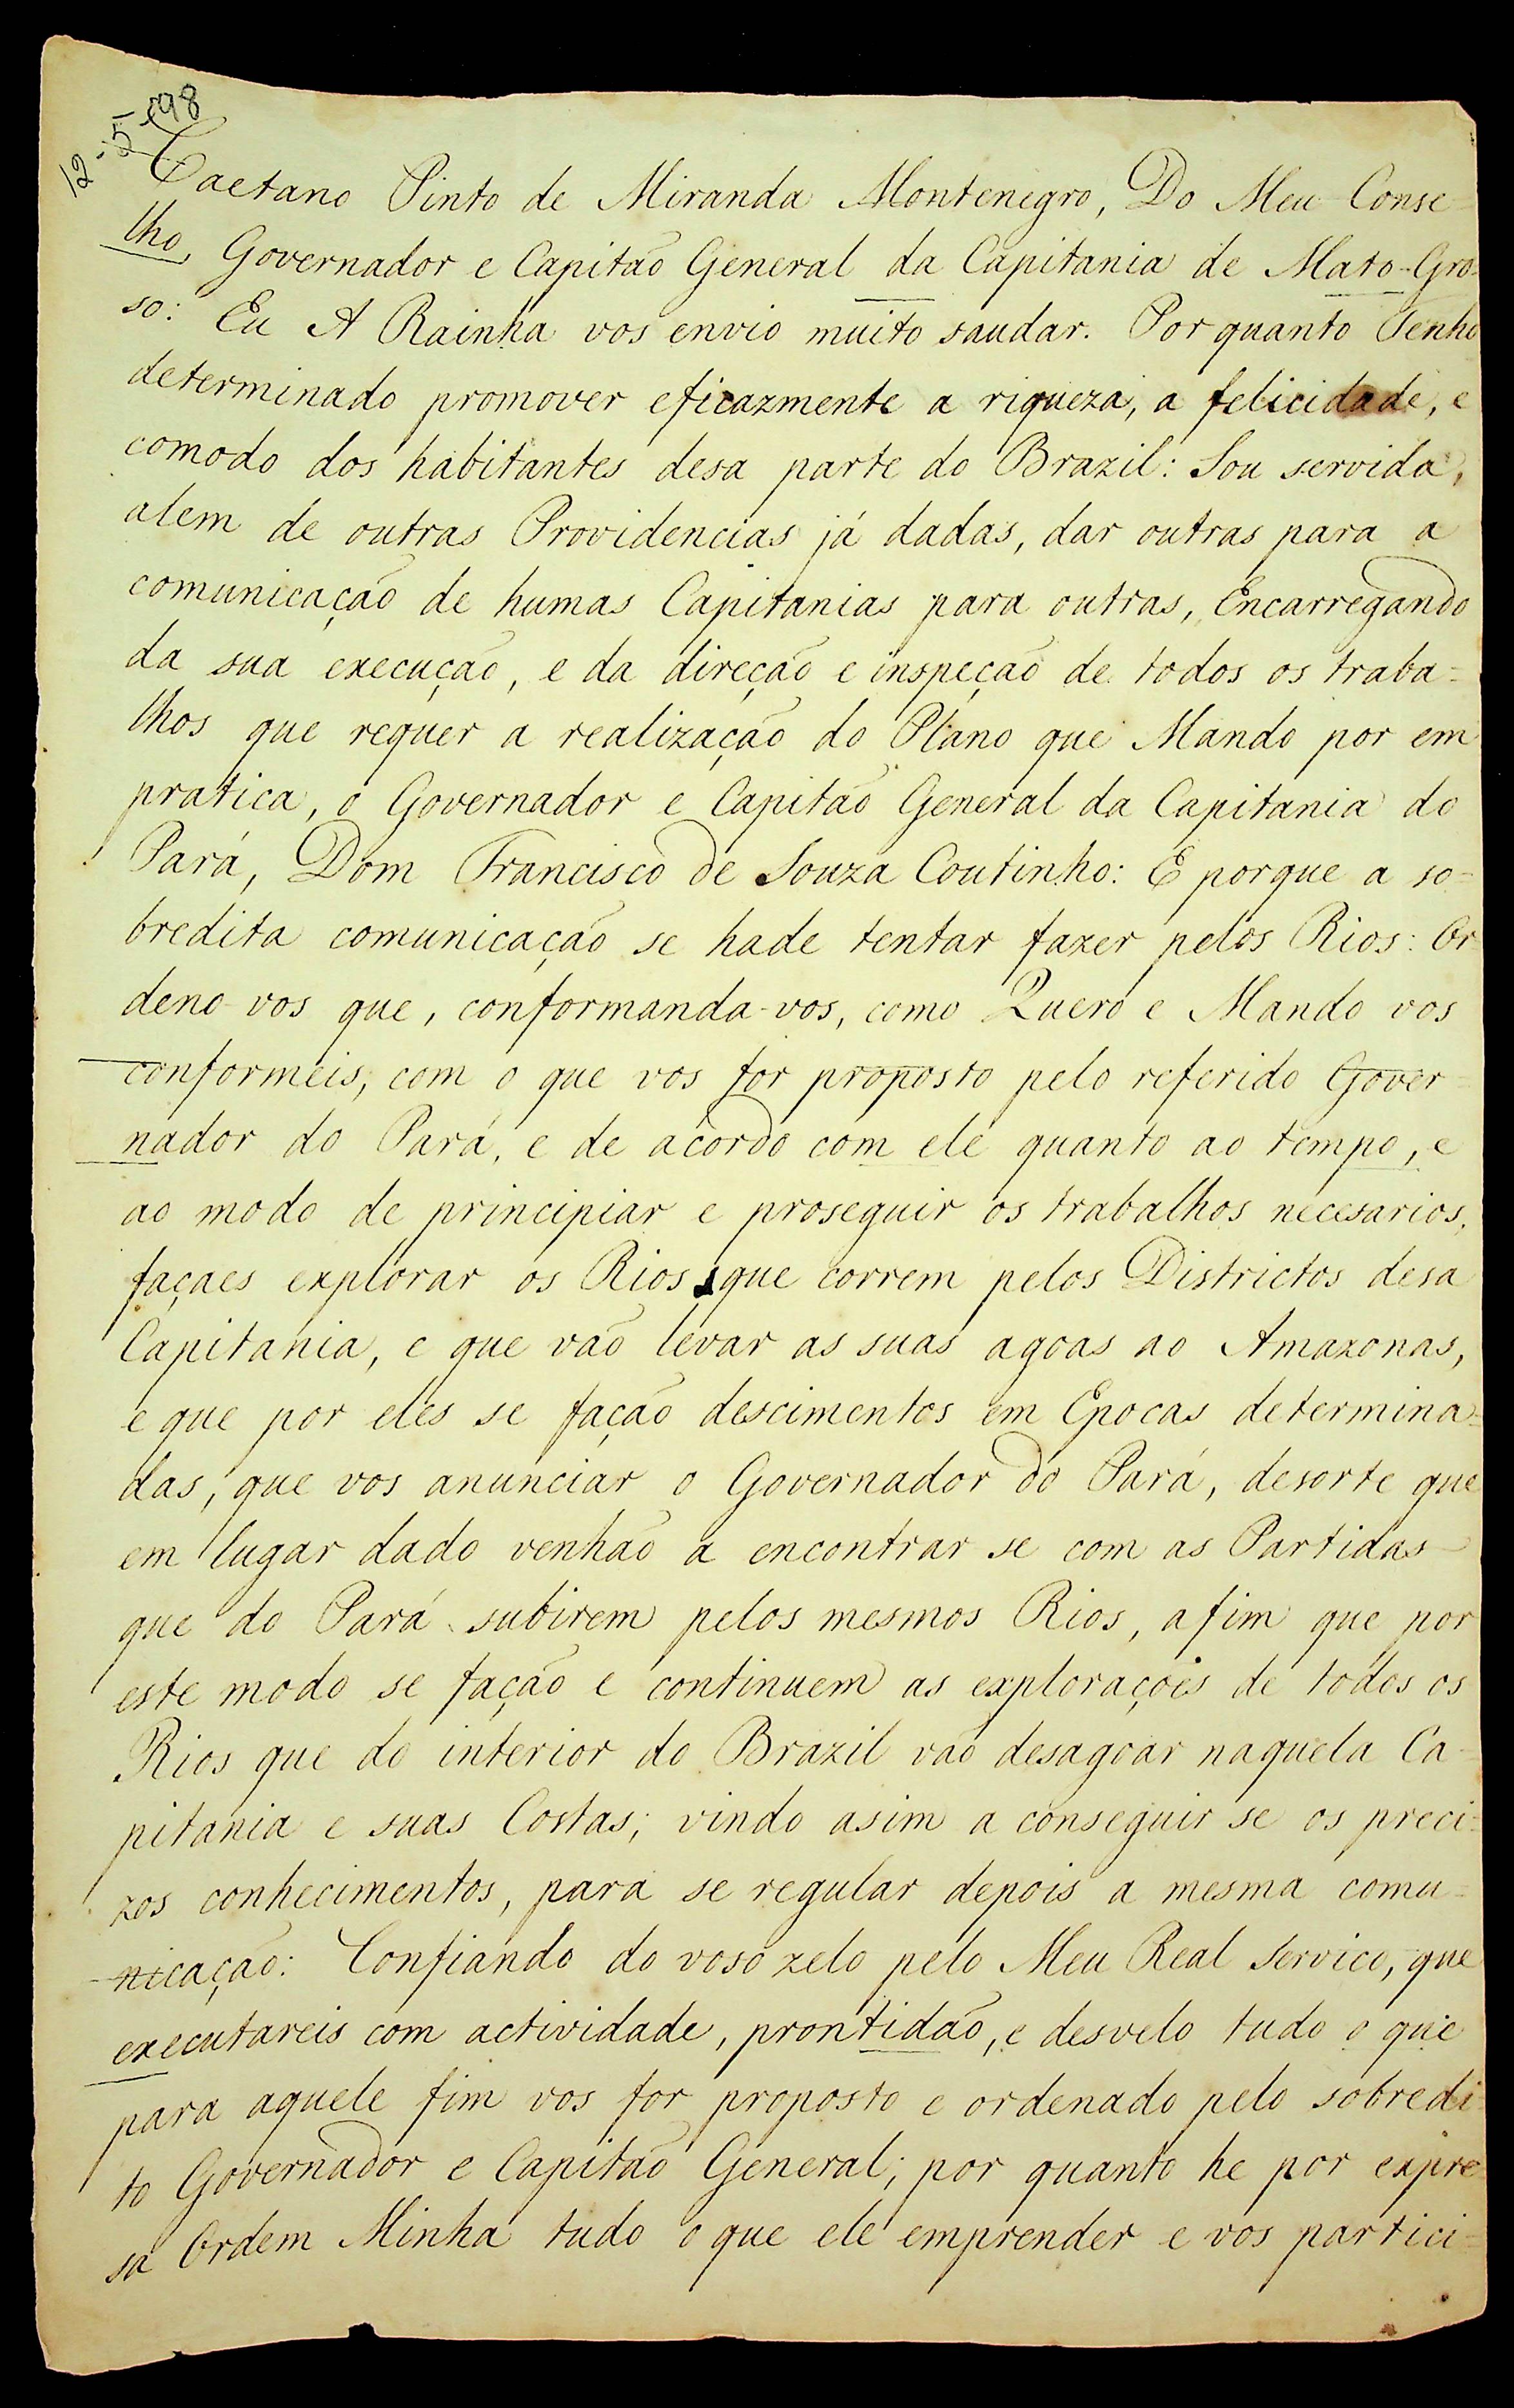 12-5-98
Caetano Pinto de Miranda Montenegro, Do Meu Conse=
lho, Governador e Capitão General da Capitania de Mato-Gro=
so: Eu A Rainha vos envio muito saudar. Por quanto Tenho
determinado promover eficazmente a riqueza, a felicidade, e
comodo dos habitantes desa parte do Brazil: Sou servida,
alem de outras Providencias já dadas, dar outras para a
comunicação de humas Capitanias para outras, Encarregando
da sua execução, e da direção e inspeção de todos os traba=
lhos que requer a realização do Plano que Mando por em
pratica, o Governador e Capitão General da Capitania do
Pará, Dom Francisco de Souza Coutinho: E porque a so=
bredita comunicação se hade tentar fazer pelos Rios: Or
deno-vos que, conformanda-vos, como Quero e Mando vos
conformeis, com o que vos for proposto pelo referido Gover=
nador do Pará, e de acordo com ele quanto ao tempo, e
ao modo de principiar e proseguir os trabalhos necesarios,
façaes explorar os Rios, que correm pelos Districtos desa
Capitania, e que vão levar as suas agoas ao Amazonas,
e que por eles se fação descimentos em Epocas determina=
das, que vos anunciar o Governador do Pará, desorte que
em lugar dado venhão a encontrar se com as Partidas
que do Pará subirem pelos mesmos Rios, afim que por
este modo se fação e continuem as explorações de todos os
Rios que do interior do Brazil vão desagoar naquela Ca=
pitania e suas Costas; vindo asim a conseguir se os preci=
zos conhecimentos, para se regular depois a mesma comu=
nicação: Confiando do voso zelo pelo Meu Real Servico, que
executareis com actividade, prontidão, e desvelo tudo o que
para aquele fim vos for proposto e ordenado pelo sobredi=
to Governador e Capitão General; por quanto he por expre
sa Ordem Minha tudo o que ele emprender e vos partici=